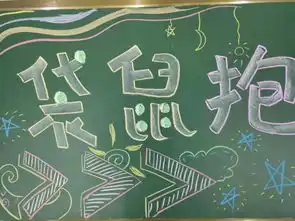 袋鼠抱